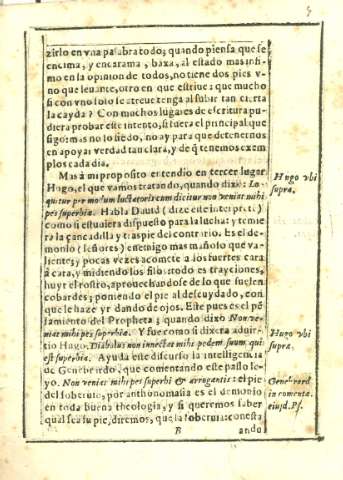 5
zirlo en vna palabra todo; quando piensa que se
encima, y encarama, baxa, al estado mas infi-
mo en la opinion de todos, no tiene dos pies v-
no que leuante, otro en que estriue: que mucho
si con vno solo se atreue tenga al subir tan cierta
la cayda? Con muchos lugares de escritura pu-
diera prouar este intento, si fuera el principal que
sigo: mas no lo siẽdo, no ay para que detenernos
en apoyar verdad tan clara, y de q̃ tenemos exem
plos cada dia.
Mas à mi proposito entendio en tercer lugar
Hugo, el que vamos tratando, quando dixo: Lo-
quitur per modum luctatoris cum dicitur non veniat mihi
pes superbiæ. Habla Dauid (dize este interprete)
como si estuuiera dispuesto para la lucha: y temie
ra la çancadilla y traspie del contrario. Es el de-
monio (señores) enemigo mas mañoso que va-
liente; y pocas vezes acomete a los fuertes cara
à cara, y midiendo los filos: todo es trayciones,
huye el rostro, aprouechandose de lo que suelen
cobardes; poniendo el pie al descuydado, con
que le haze yr dando de ojos. Este pues es el pẽ-
samiento del Propheta; quando dixo Non ve-
niat mihi pes superbiæ. Y fue como si dixera aduir-
tio Hugo. Diabolus non innectat mihi pedem suum qui
est superbiæ. Ayuda este discurso la inteligencia
de Genebrardo, que comentando este passo le-
yo. Non veniat mihi pes superbi & arrogantis: el pie
del soberuio, por anthonomasia es el demonio
en toda buena theologia, y si queremos saber
qual sea su pie, diremos, que la soberuia: con esta
B
andu
Hugo vbi
supra.
Hugo vbi
supra.
Genebrard
in comenta.
eiusd. Ps.